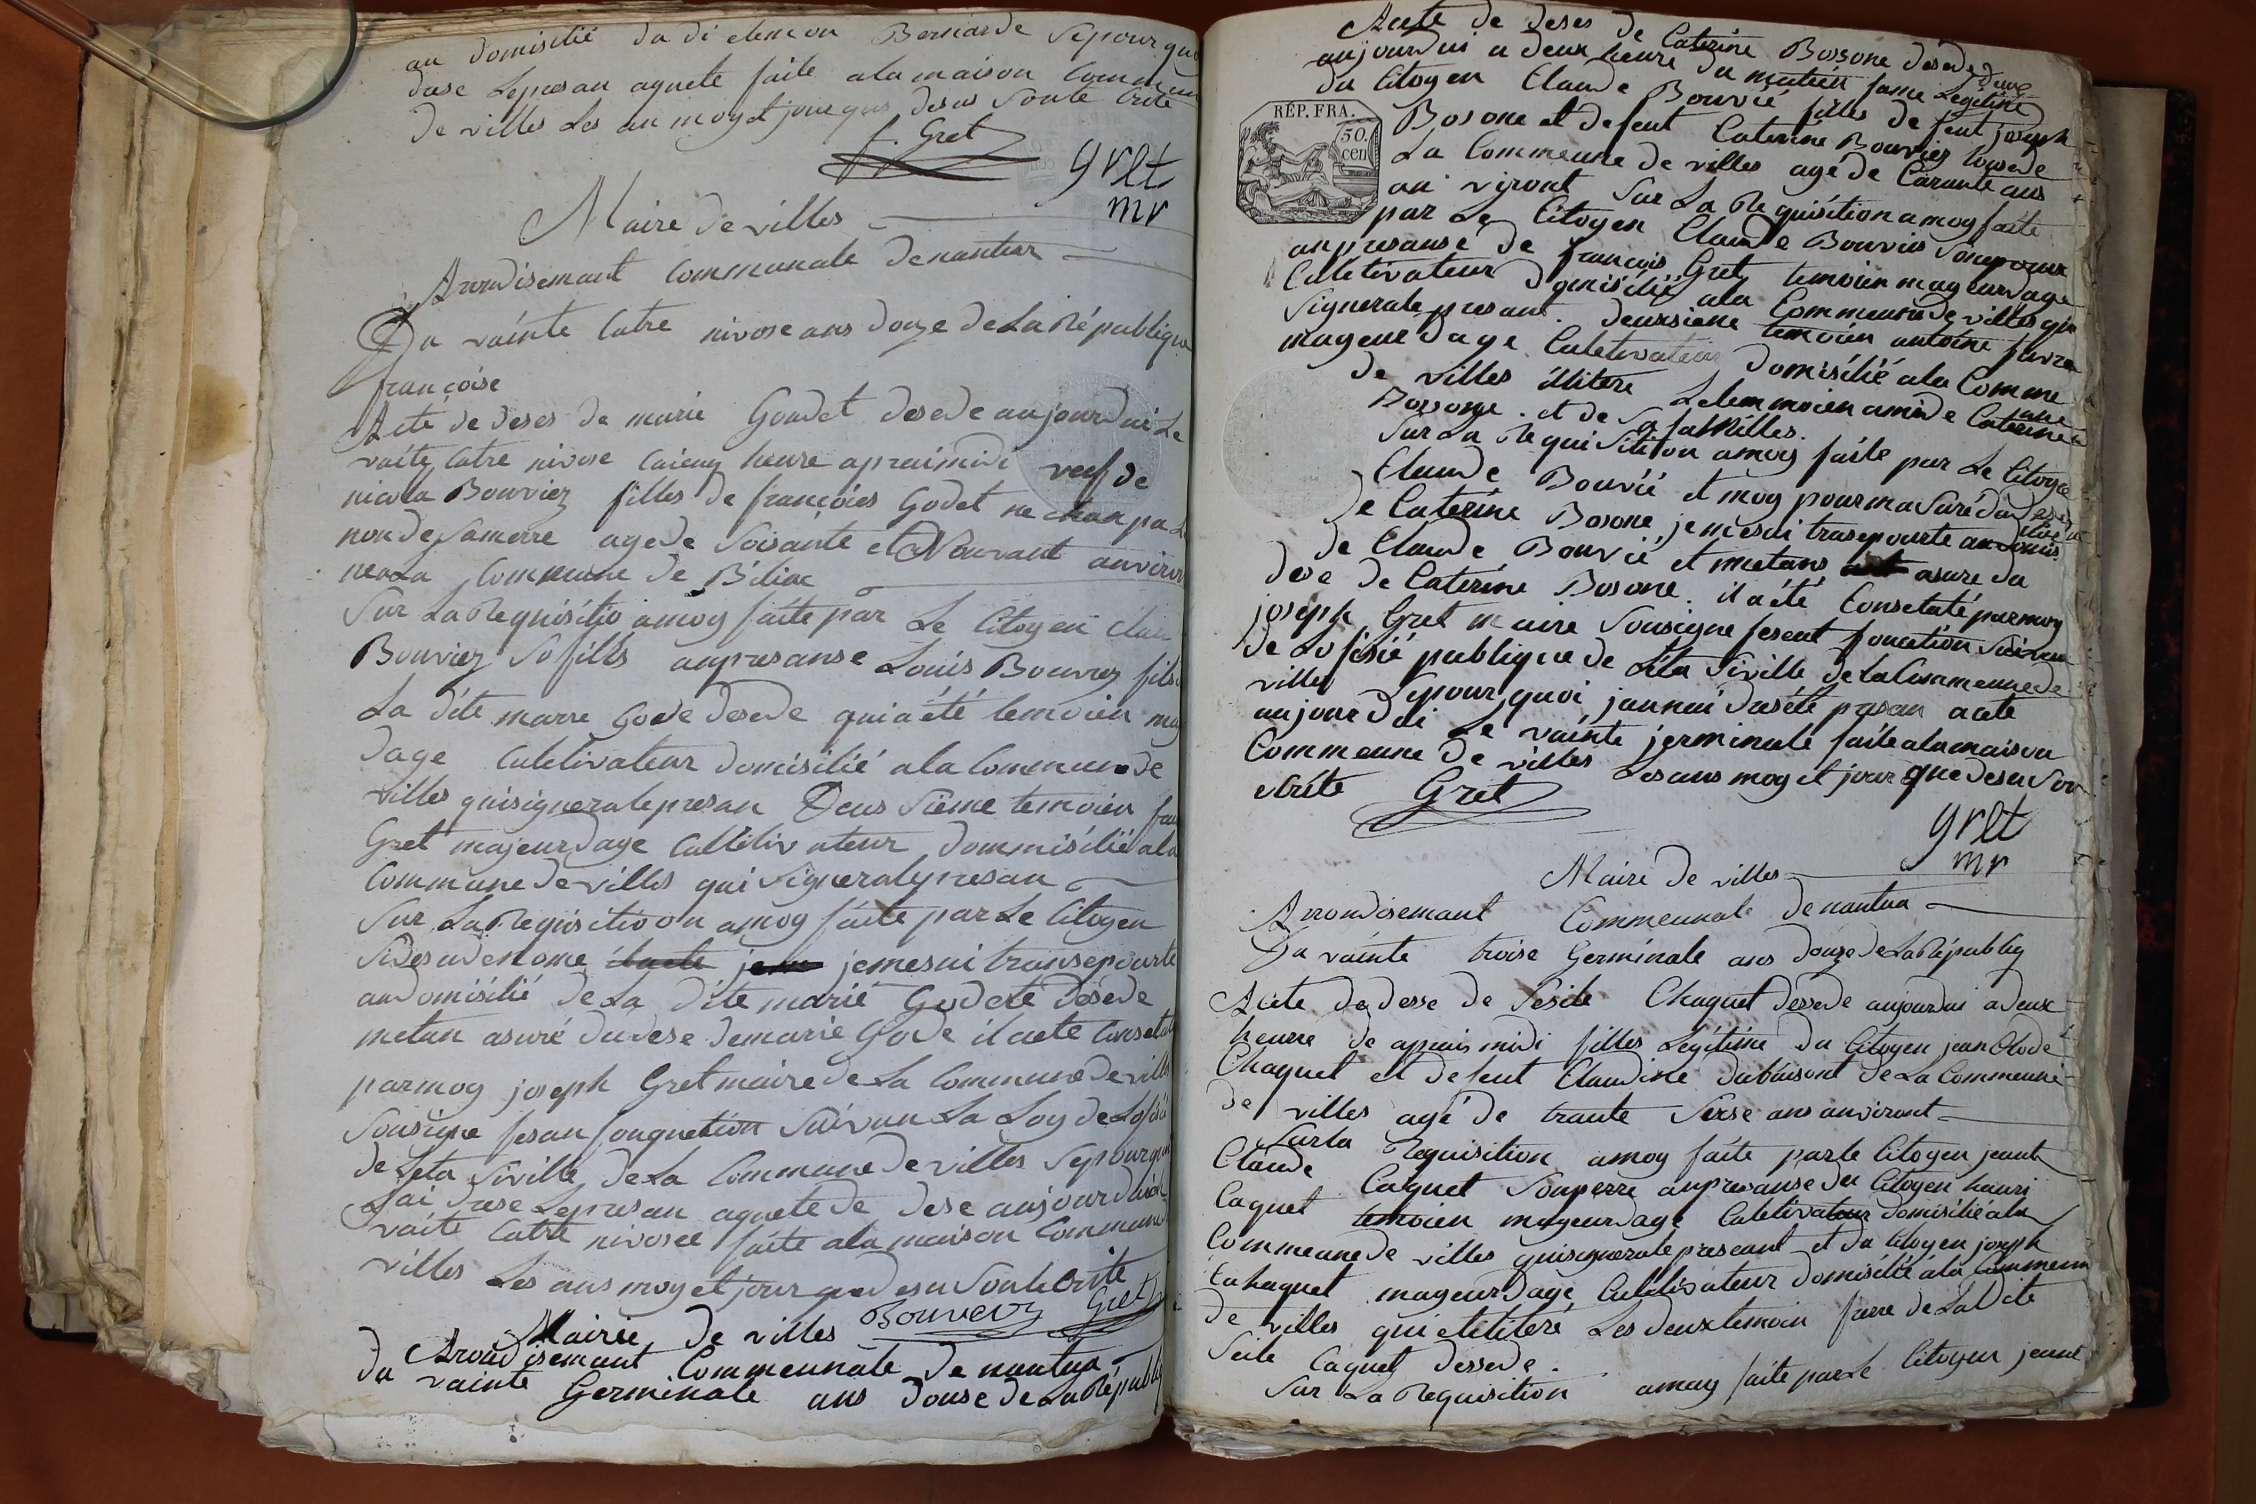 au domisilié du di clemon Bernarde Sepourquoi
dase Lepresan aquete faite ala maison Commeun
de villes Les an moy et jour que desus Soute Crite
f. Gret
gret
mr
Maire de villes
Arondisemant Communale denantua
Du vainte Catre nivose ans douze de La République
françoise
Acte de deses de marie Goudet desede aujourduile
vaite Catre nivose Caieux heure apraimidi veuf de
nicola Bouviez filles de françoies Godet ne
non de Samerre agede Soisante et
neala Commeune de Béliac
Sur La Requisitio amoy faite par Le Citoyen
Bouviez So fills anpresanse Louis Bouviez fils
La dite marre Gode desede quia été temoien
dage Culetivateur domisilié ala Commeun de
villes quisigneralepresan Deus Sieme temoien
Gret majeurdage Culletivateur dommisilié ala
Commune de villes qui Signeralepresan
Sur La Requisitioon amoy faite par Le Citoyen
Sidesudenome jemesui transepourte
audomisilié de La dite marié Godete desede
metan asuré dudese demarie Gode il aete Consetate
parmoy joseph Gret maire de La Commune de villes
Sousigne fesan fonquetion Suivan La Loy de
de Leta Siville de La Commune de villes Sepourquoi
jai drese Lepresan aquete de dese aujourduile
vaite Catre nivosee faite ala maison Commeune
villes Les ans moy et jour que desu Soute Crite
Bouvery Gret
Mairie de villes
Arondisemant Commeunale de nantua
du vainte Germinale ans douse de La Républiq
Acete de deses de Caterine Bossone desede
aujourdui a deux heure du matien fame Legetime
du Citoyen Claude Bouvié filles de feut joseph
RÉP. FRA.
50.
cen
Bosone et defeut Caterine Bouviez
La Commeune de villes agé de Carante ans
an viront Sur La Requisition amoy faite
par Le Citoyen Claude Bouvies Sonepoux
anpresanse de francois Gret temoien mageurdage
Culletivateur domisilié ala Commeunde villes qui
Signerale presant. deuxsieme temoien antoine favre
mageur dage Culetivateur domisilié ala Comme
de villes illitere Letemmoien amide Caterine
Bossonne. et de Sa families.
Sur La Requisition amoy faite par Le Citoye
Claude Bouvié et moy pour ma Suré du
de Caterine Bosone jemesui transepourte au domis
de Claude Bouvié et metans asure du
dese de Caterine Bosone. il a été Consetaté parmoy
joseph Gret maire Sousigne fesent fonction Suivan
de Lofisié publique de Léta Siville de LaCommeunede
villes Sepourquoi jaunai dasété presan acete
aujourdui Le vainte jerminale faite alamaison
Commeune de villes Lesans moy et jour que desu Sou
etcrite Gret
gret
mr
Maire de villes
Arrondisemant Commeunale denantua
Du vainte troise Germinale ans douze de La Républiq
Acete de desse de Sesile Chaquet dessede aujourdui a deux
heurre de apraismidi filles Legitime du Citoyen jean Clode
Chaquet et de feut Claudine dubuisont de La Commeune
de villes agé de trante Sesse ans anviront
Surla Requisition amoy faite parle Citoyen jeant
Claude Caquet Souperre anpresanse du Citoyen hanri
Caquet temoien mageurdage Culetivateur domisilié ala
Commeune de villes quisignerale preseant et du Citoyen joseph
Cahaquet mageurdage Culetivateur domisilié ala Commeun
de villes qui etilitéré Les deuxtemoin frere de La dite
Seile Caquet dessede.
Sur La Requisition amoy faite par Le Citoyen jeant